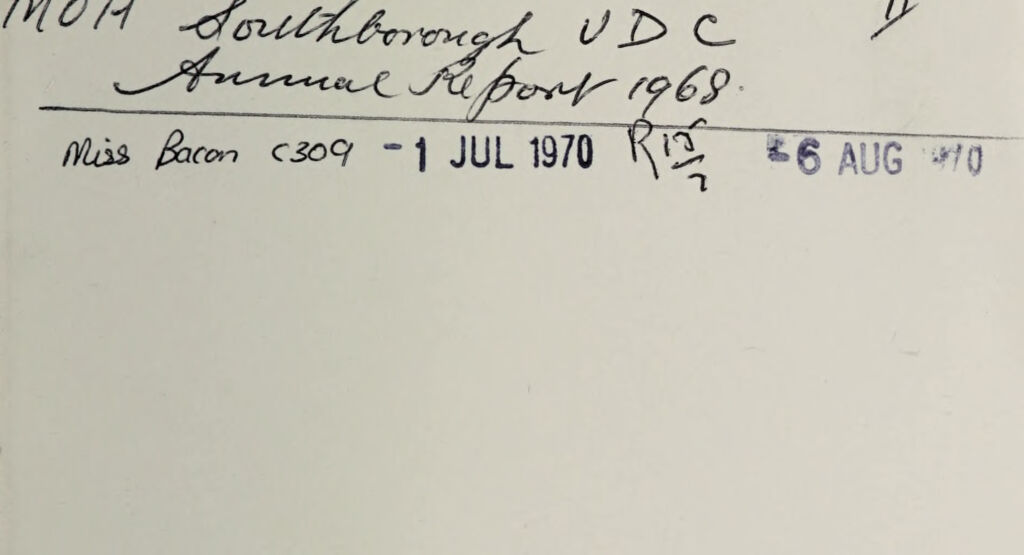 MOH Southborough UDC 11
Annual Report 1968.
Miss Bacon C309 -1 JUL 1970 R15/7 -6 AUG 1970